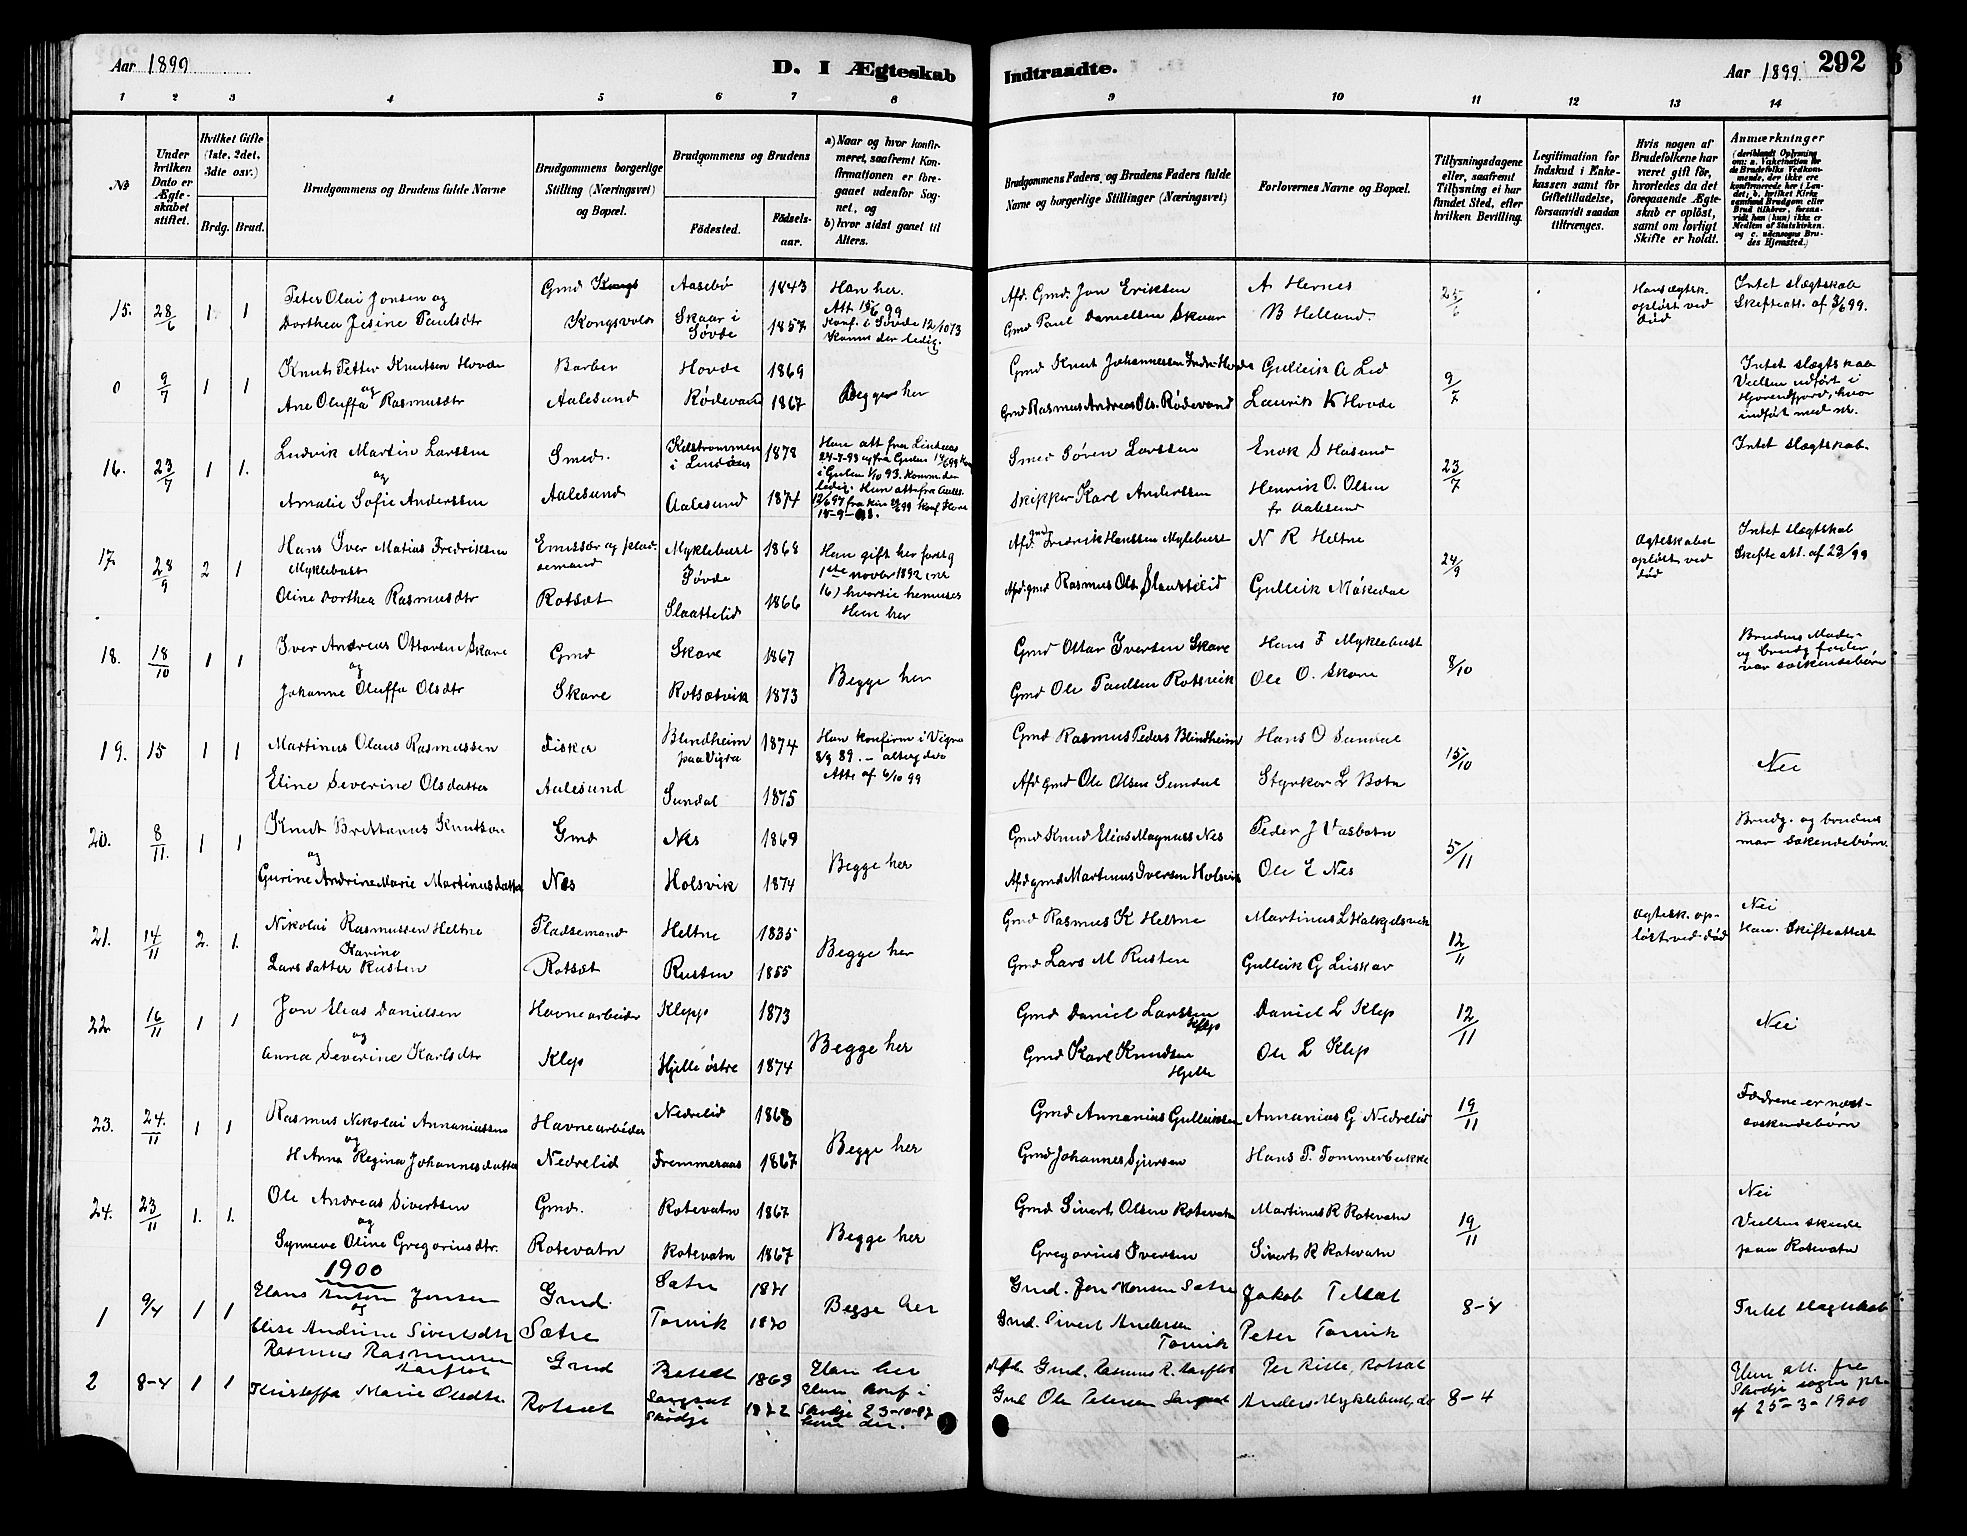 Aar 1899
D. I Ægteskab Indtraadte.
Aar 1899. 292
1 2 3 4 5 6 7 8 9 10 11 12 13 14
No
Under hvilken Dato er Ægteskabet stiftet.
Hvilket Gifte (1ste, 2det, 3die osv.)
Brdg. Brud.
Brudgommens og Brudens fulde Navne
Brudgommens borgerlige Stilling (Næringsvei) og Bopæl.
Brudgommens og Brudens
Födested. Födsels-aar.
a) Naar og hvor konfirmeret, saafremt Konfirmationen er foregaaet udenfor Sognet, og
b) hvor sidst gaaet til Alters.
Brudgommens Faders, og Brudens Faders fulde Navne og borgerlige Stillinger (Næringsvei)
Forlovernes Navne og Bopæl.
Tillysningsdagene eller, saafremt Tillysning ei har fundet Sted, efter hvilken Bevilling.
Legitimation for Indskud i Enkekassen samt for Giftetilladelse, forsaavidt saadan tiltrænges.
Hvis nogen af Brudefolkene har været gift för, hvorledes da det foregaaende Ægteskab er oplöst, samt om lovligt Skifte er holdt.
Anmærkninger
15. 28/6 1 1 Peter Olai Jonsen og Gmd Aasebø 1843 Han her. Afd. Gmd. Jon Eriksen A Hernes 25/6 Hans ægtsk. opløst ved død Intet slægtskab Skifteatt. af 3/6 99.
Dorthea Jesine Paulsdtr Kongsvold Skaar i Søvde 1857 Att 15/6 99 Konf. i Søvde 12/10 73 Kommer ledig. Gmd Paul Danielsen Skaar B Helland.
0 9/7 1 1 Knut Petter Knutsen Hovde Barber Hovde 1869 Begge her Gmd Knut Johannessen Indre-Hovde Gulleik A Lid 9/7 Intet slægtskab Vielsen udført i Hjørendfjord, hvor indført med nr.
og Ane Oluffa Rasmusdtr Aalesund Rødevand 1867 Gmd Rasmus Andreas Ols. Rødevand Laurik K Hovde
16. 23/7 1 1. Ludvik Martin Larssen Smed. Kilstrømmen i Lindaas 1878 Han att fra Lindaas Smed Søren Larssen Enok S Hasund 23/7 Intet slægtskab
og Amalie Sofie Anderssen Aalesund Aalesund 1874 Skipper Karl Anderssen Henrik O. Olsen fr Aalesund
17. 28/9 2 1 Hans Iver Matias Fredriksen Myklebust Emissær og pladsemand Myklebust Søvde 1868 Han gift her forrig 1ste novbr 1892 (nr 16) hvortil henvises Hun her Afd. Gmd Fredrik Hanssen Myklebust N R Heltne 24/9 Ægteskabet opløst ved død Intet slægtskab Skifte att. af 23/9 99
Oline Dorthea Rasmusdtr Rotsæt Slaattelid 1866 Afd. gmd Rasmus Ols Slaattelid Gulleik Måkedal
18. 18/10 1 1 Iver Andreas Ottarsen Skare Gmd Skare 1867 Begge her Gmd Ottar Iversen Skare Hans F Myklebust 8/10 Brudens Moder og brudg fader, var søskendebørn
og Johanne Oluffa Olsdtr Skare Rotsætvik 1873 Gmd Ole Paulsen Rotsvik Ole O. Skare
19. 15 1 1 Martinus Olaus Rasmussen Fisker Blindheim paa Vigra 1874 Han konfirm i Vigra 8/9 89. Gmd Rasmus Peders Blindheim Hans O Sundal 15/10 Nei
Eline Severine Olsdatter Aalesund Sundal 1875 Atte af 6/10 99 Afd gmd Ole Olsen Sundal Styrkar L Botn
20. 8/11. 1 1 Knut Brittanus Knutsen Gmd Nes 1869 Begge her Gmd Knud Elias Magnuss Nes Peder J Vasbotn 5/11 Brudg. og bruden var søskendebørn.
og Gurine Andrine Marie Martinusdatter Næs Holsvik 1874 Afd gmd Martinus Iversen Holsvik Ole E Nes
21. 14/11 2. 1. Nikolai Rasmussen Heltne Pladsemand Heltne 1835 Begge her Gmd Rasmus K Heltne Martinus L Halkjelsvik 12/11 Ægtesk. opløst ved død Nei Han. Skifteattest
Karine Larsdatter Rusten Rotsæt Rusten 1855 Gmd Lars M Rusten Gulleik G Liskar
22 16/11 1 1 Jon Elias Danielsen Havnearbeider Klepp 1873 Begge her Gmd Daniel Larssen Klep Daniel L Klep 12/11 Nei
og Anna Severine Karlsdtr Klep Hjelle østre 1874 Gmd Karl Knudsen Hjelle Ole L Klep
23. 24./11 1 1 Rasmus Nikolai Annaniassen Havnearbeider Nedrelid 1868 Begge her Gmd Annanias Gulleiksen Annanias G Nedrelid 19/11 Fædrene er næstsøskendebørn
og H Anna Regina Johannesdatter Nedrelid Fremmeraas 1867 Gmd Johannes Sjursen Hans P. Tommerbakke
24. 23/11 1. 1. Ole Andreas Sivertsen Gmd. Rotevatn 1867 Begge her Gmd Sivert Olsen Rotevatn Martinus R Rotevatn 19/11 Nei Vielsen skeede paa Rotevatn
og Synneve Oline Gregoriusdtr. Rotevatn Rotevatn 1867 Gregorius Iversen Sivert R Rotevatn
1900
1 9/4 1 1 Hans Anton Jonsen Gmd. Sætre 1871 Begge her Gmd. Jon Monsen Sætre Jakob Tellset 8-4 Intet slægtskab
og Elise Andrine Sivertsdtr Sætre Torvik 1870 Gmd. Sivert Andersen Torvik Peter Torvik
2 8-4 1 1 Rasmus Rasmussen Aarflot Gmd 1869 Han her Gmd. Rasmus R. Aarflot Per Ritte, Rotsæt 8-4 Hun att. fra Skodje af 25-3-1900
Kristoffa Marie Olsdtr. Rotsæt Skodje 1872 Hun konf i Skodje 23-10-87 Gmd Ole Petersen Anders Myklebust, do